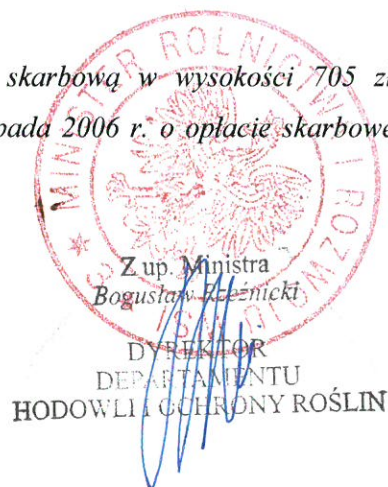 skarbową w wysokości 705 zł
pada 2006 r. o opłacie skarbowe
MINISTER ROLNICTWA I ROZWOJU WSI
Z up. Ministra
Bogusław Rzeźnicki
DYREKTOR
DEPARTAMENTU
HODOWLI I OCHRONY ROŚLIN